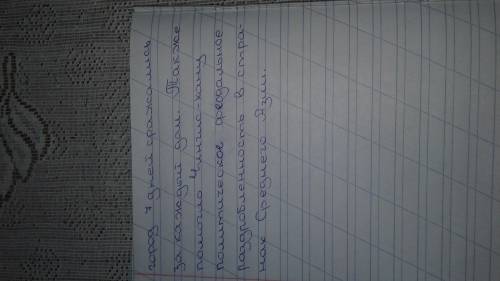 город 7 дней сражались
за каждый дом. Также
помогло Чингис-хану
политическое феодальное
раздробленность в стра-
нах Среднего Азии.